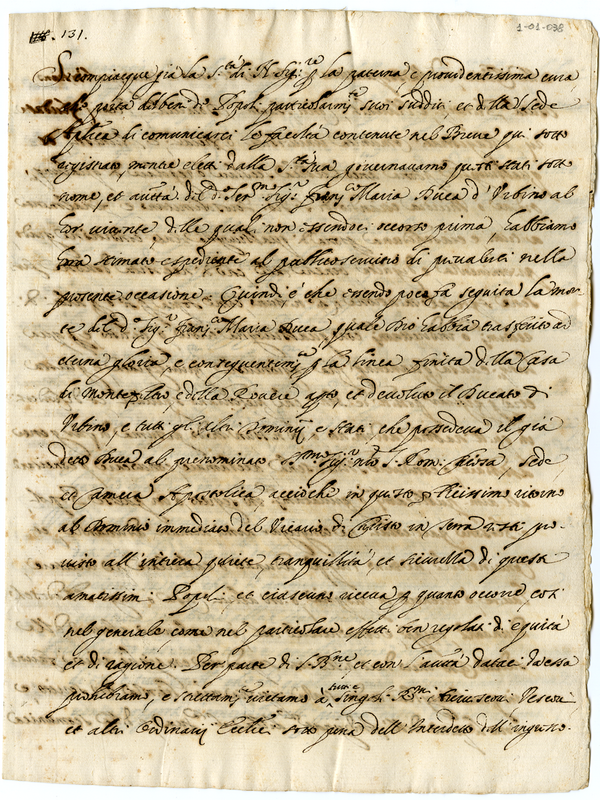 131.
1-01-038
Si compiacque già la S.tà di N. Sig.re p la paterna e providentissima cura
che porta al ben de Popoli particolarm.te suoi sudditi et della Sede
Aplica di comunicarci le facoltà contenute nel Breve qui sotto
registrato, mentre eletti dalla S.tà Sua governavamo questi stati sotto
nome, et autità del d.o Ser.mo Sig.r Franc.co Maria Duca d'Urbino al
hor vivente delle quali non essendoci occorso prima, habbiamo
hora stimato espediente al publico servitio di prevalerci nella
presente occasione. Quindi è che essendo poco fa seguita la mor-
te del d.o Sig.r Franc.co Maria Duca, quale Dio habbia trasferito ad
eterna gloria, e consequentem.te p la linea finita della Casa
di Montefeltro, e della Rovere apto, et devoluto il Ducato di
Urbino, e tutti gl'altri Dominij, e Stati, che possedeva il già
detto Duca al prenominato S.mo Sig.r n.ro S. Rom. Chiesa, Sede,
et Camera Apostolica, acciochè in questo felicissimo ritorno
al Dominio immediato del Vicario di Christo in terra resti pro-
visto all'intiera quiete, tranquillità, et sicurezza di questi
amatissimi Popoli et ciascuno riceva p quanto occorre, così
nel generale come nel particolare effetti ben regolati d'equità
et di ragione. Per parte di S. B.ne et con l'autità dataci da essa
prohibiamo, e strettam.te vietamo à
et altri Ordinarij Eccl.ci sotto pena dell'Interdetto dell'ingresso-